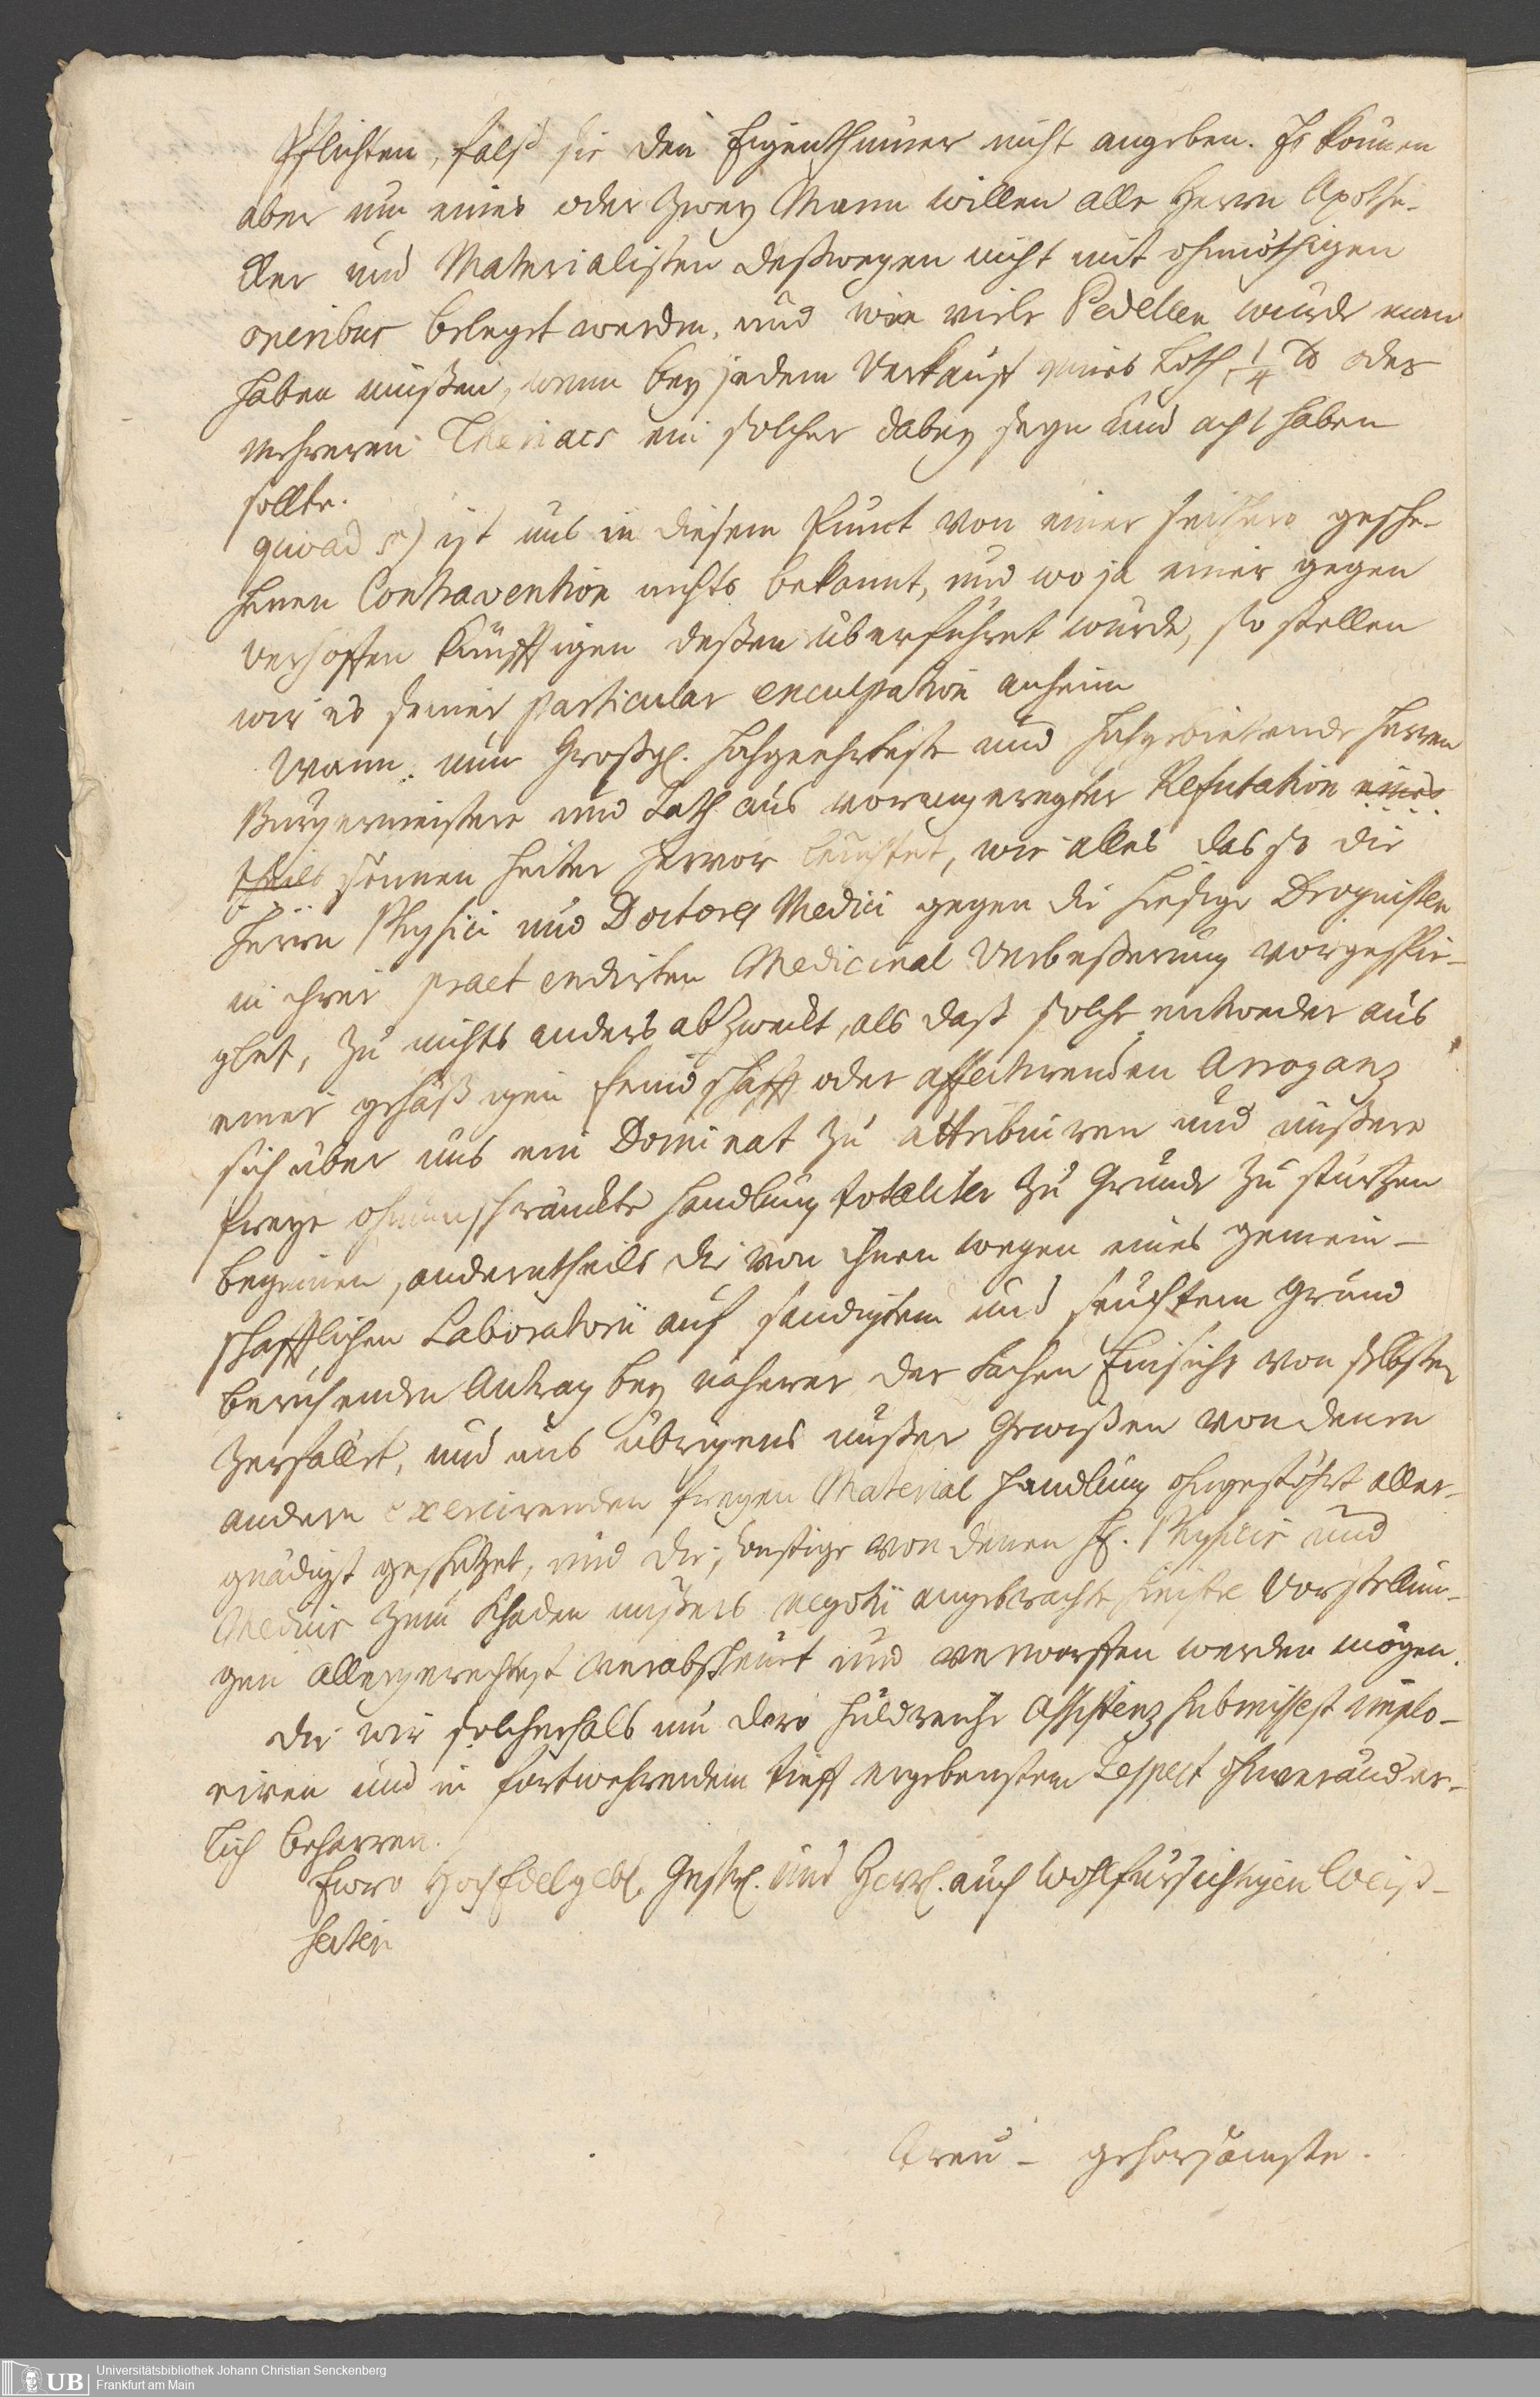 Pflichten, falß sie den Eigenthümer nicht angeben. Es können
aber um eines oder zwey Mann willen alle Herrn Apothe-
cker und Materialisten deßwegen nicht mit ohnnöthigen
oneribus beleget werden, und wie viele Pedellen würde man
haben müßen, wenn bey jedem Verkauff eines Loth, 1/4 ℔ oder
mehreren Theriacs ein solcher dabey seyn und acht haben
sollte.
quoad 5) ist uns in diesem Punct von einer seithero gesche-
henen Contravention nichts bekannt, und wo ja einer gegen
verhoffen künfftigen deßen überführet würde, so stellen
wir es seiner particular exculpation anheim
Wann nun Großg. Hochgeehrteste und Hochgebietende Herren
Burgermeistere und Rath aus vorangeregter Refutation eines
theils sonnen heiter hervor leuchtet, wie alles das so die
Herrn Physici und Doctores Medici gegen die hiesige Droguisten
in ihrer praetendirten Medicinal Verbeßerung vorgespie-
glet, zu nichts anders abzweckt, als daß solche entweder aus
einer gehäßigen Feindschafft oder affectirenden Arroganz
sich über uns ein Dominat zu attribuiren und unßere
freye ohnumschränckte Handlung totaliter zu Grunde zu stürtzen
beginnen, anderntheils die von ihnen wegen eines gemein-
schafftlichen Laboratorii auf sandigtem und feuchtem Grund
beruhenden Antrag bey näherer der Sachen Einsicht von selbsten
zerfället, und uns übrigens unßer Gewißen von denen
andern exercirenden freyen Material Handlung ohngestöhrt aller-
gnädigst geschützet, und die sonstige von denen H. Physicis und
Medicis zum Schaden unßers negotii angebrachte Vorstellun-
gen allergerechtest verabscheuet und verworffen werden mögen.
Die wir solcherhalb um dero huldreiche Assistenz submissest implo-
riren und in fortwehrendem tieff ergebenstem Respect ohnveränder-
lich beharren.
Euro HochEdelgebl. Gestr. und Herrl. auch Wohlfürsichtigen Weiß-
heiten
Treu- gehorsamste.
Universitätsbibliothek Johann Christian Senckenberg
Frankfurt am Main
UB